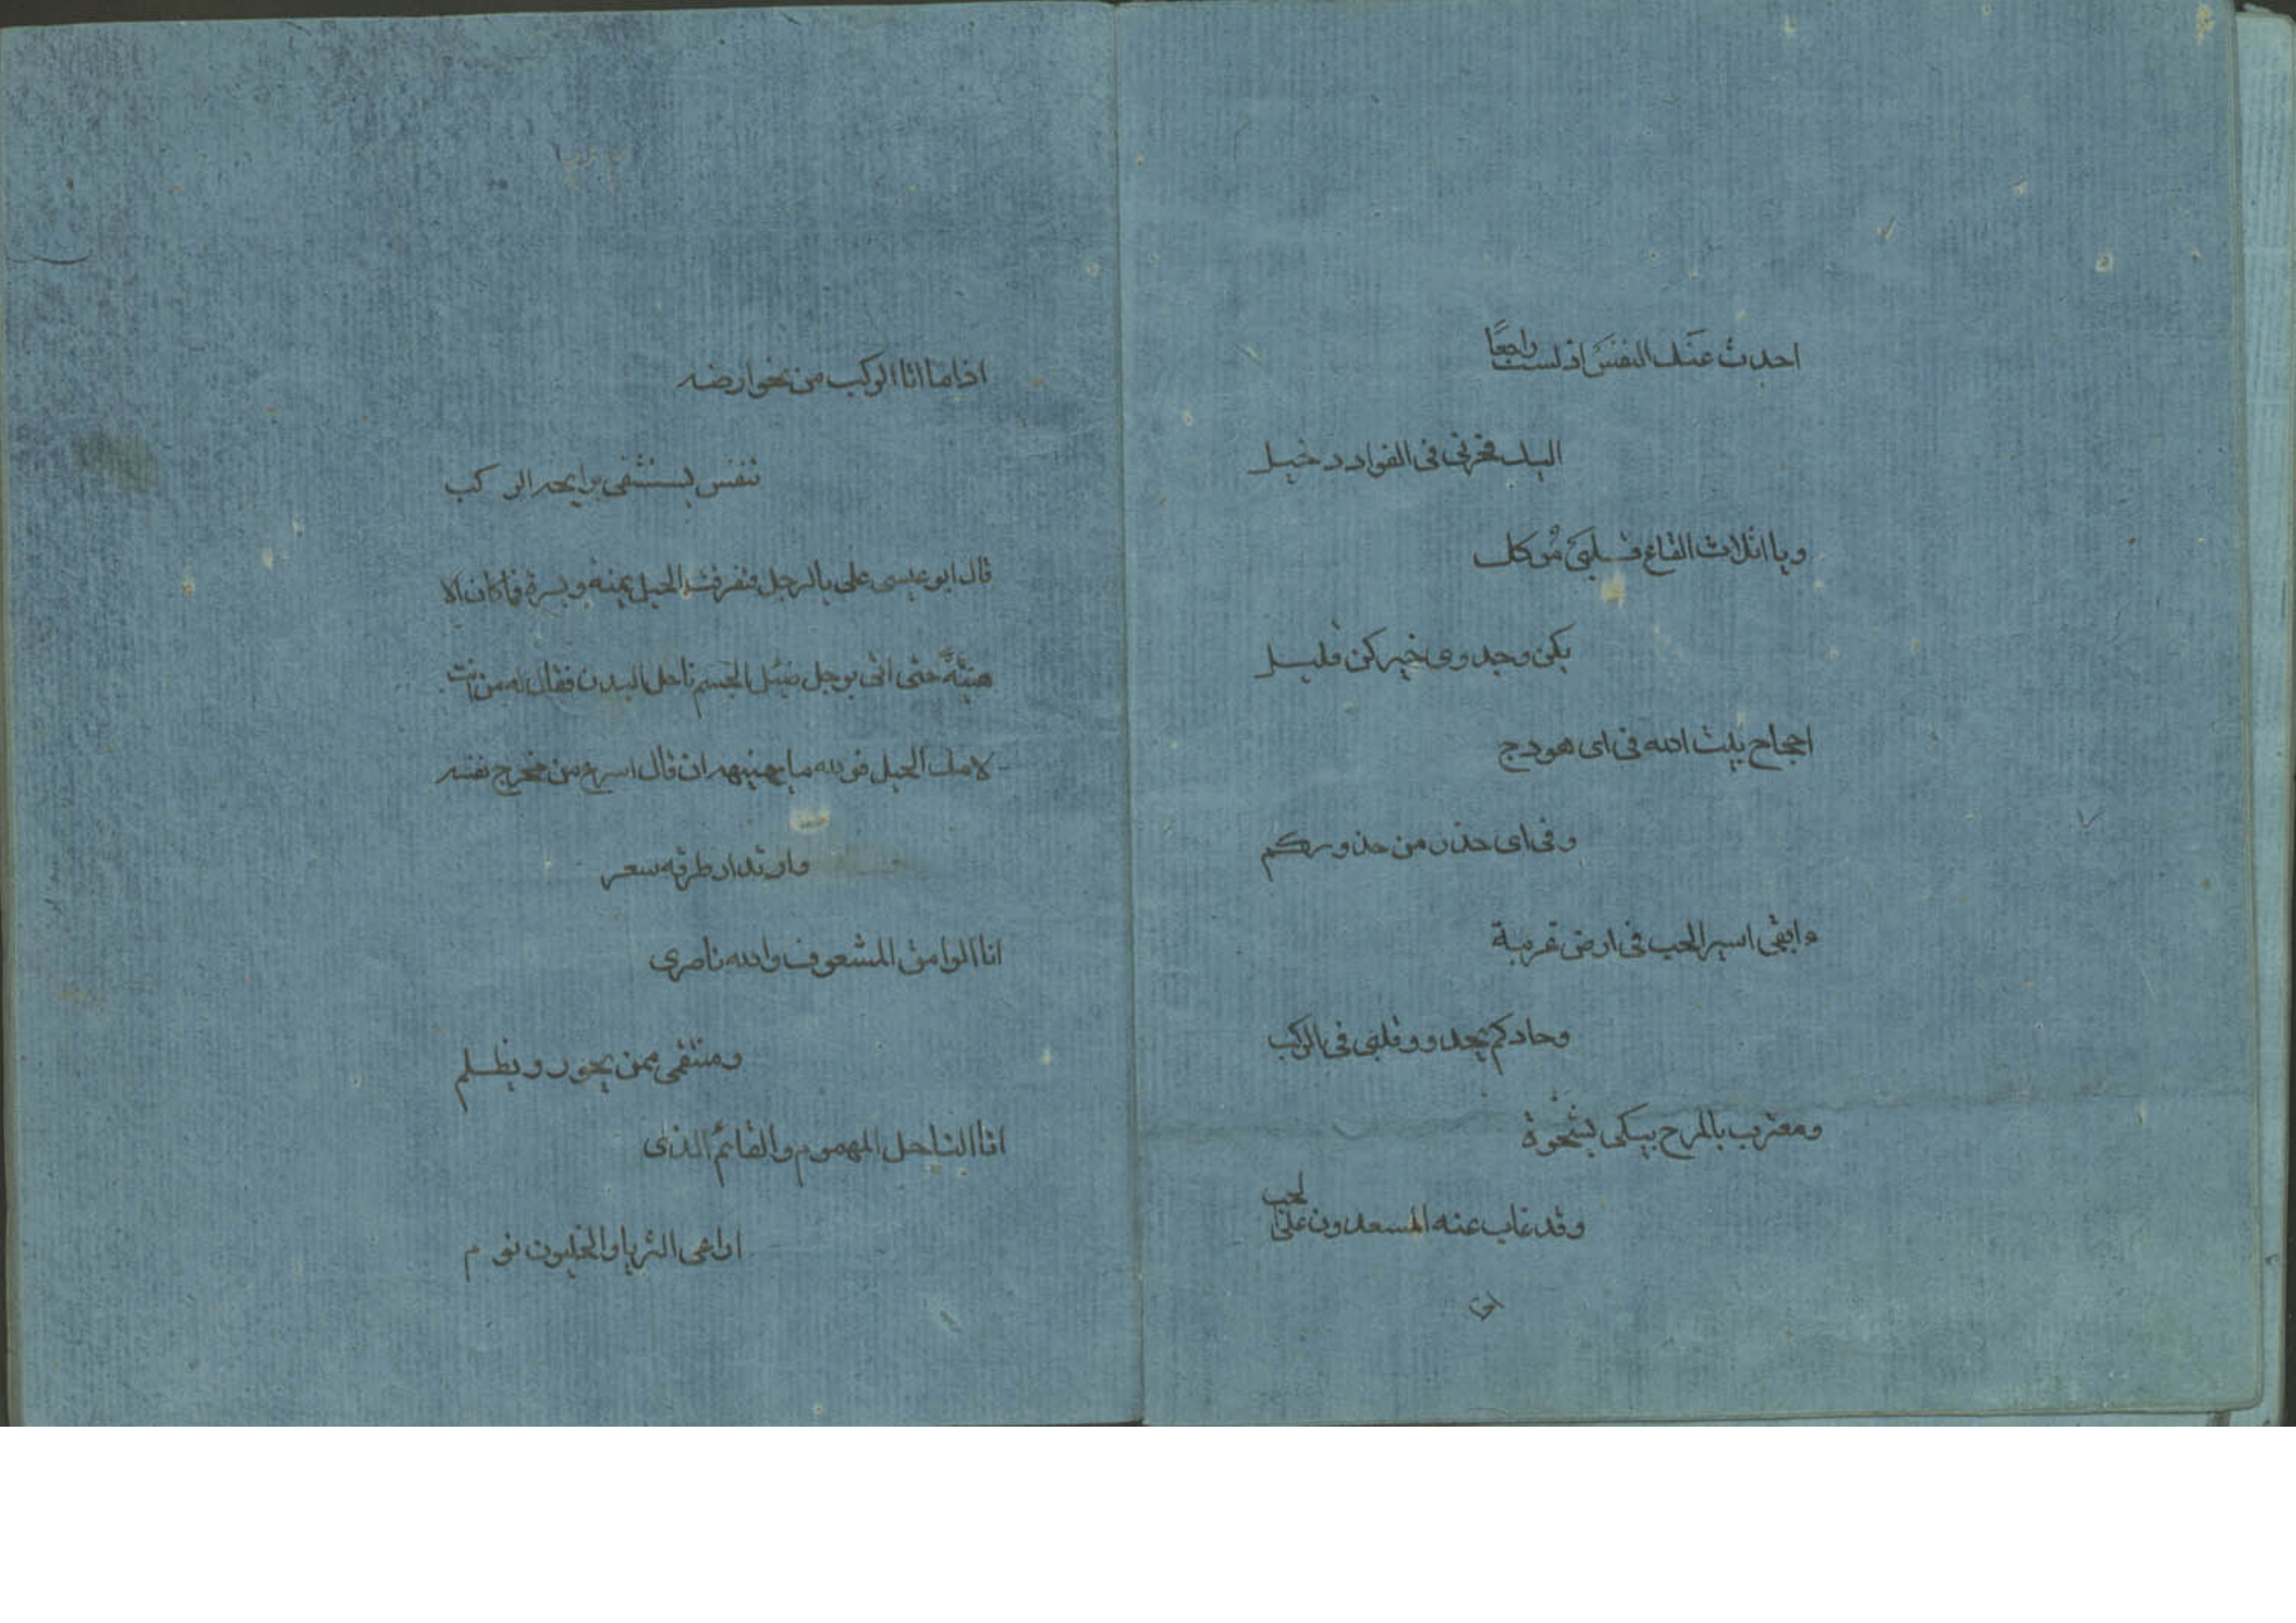 احدث عنك النفس اذ لست راجعًا
اليك فحزنى فى الفواد دخيل
ويا اثلاث القاع قلبى موكل
بكن وجدوى خيركن قليل
احجاج بيت الله فى اى هودج
وفى اى حذر من حذوركم
ءابقى اسير الحب فى ارض غربة
وحادكم يحدو وقلبى فى الركب
ومغترب بالمرح يبكى بشجوة
وقد غاب عنه المسعدون على الحب
اذا ما اتا الركب من نحو ارضه
تنفس يستشفى برايحه الركب
قال ابو عيسى على بالرجل فتفرقت الخيل يمنة ويسرة فما كان الا
هنئة حتى اتى برجل الجسم ناحل البدن فقال له من انت
لا مك الخيل فو لله ما ان قال اسرع من مخرج نفسه
وارتداد طرفه سعر
انا الوامق المشعوف والله ناصرى
ومنتقمى ممن يجور ويظلم
انا الناحل المهموم والقائم الذى
اراعى الثريا والخليون نوم